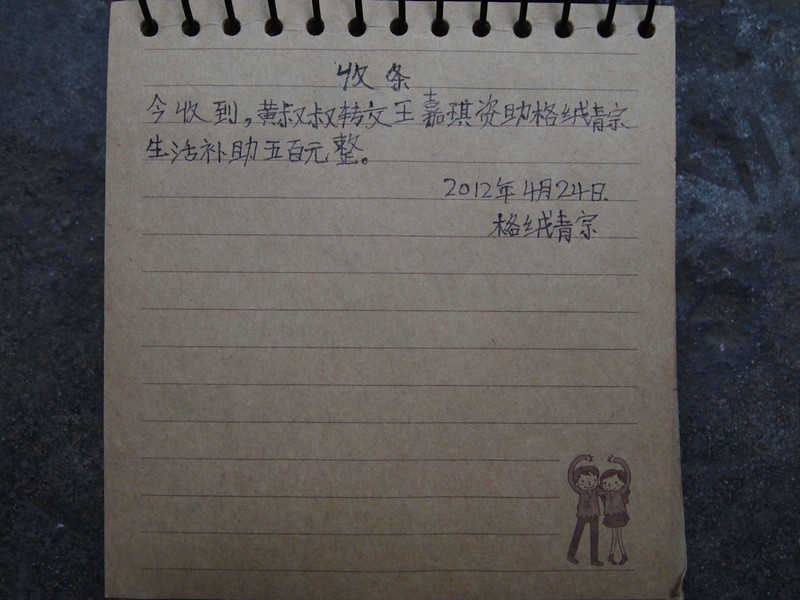 收条
今收到,黄叔叔转交王嘉琪资助格绒青宗
生活补助五百元整。
2012年4月24日.
格绒青宗